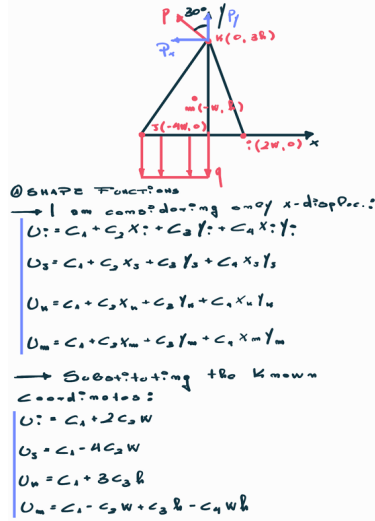 P 30° y Py
Px K(0, 3h)
m(-w, h)
J(-4w, 0)
i(2w, 0) x
q
@ SHAPE FUNCTIONS
→ I am considering only x-displac.:
Ui = C1 + C2 Xi + C3 Yi + C4 Xi Yi
UJ = C1 + C2 XJ + C3 YJ + C4 XJ YJ
UK = C1 + C2 XK + C3 YK + C4 XK YK
Um = C1 + C2 Xm + C3 Ym + C4 Xm Ym
→ Substituting the known
coordinates:
Ui = C1 + 2C2 w
UJ = C1 - 4C2 w
UK = C1 + 3C3 h
Um = C1 - C2 w + C3 h - C4 wh